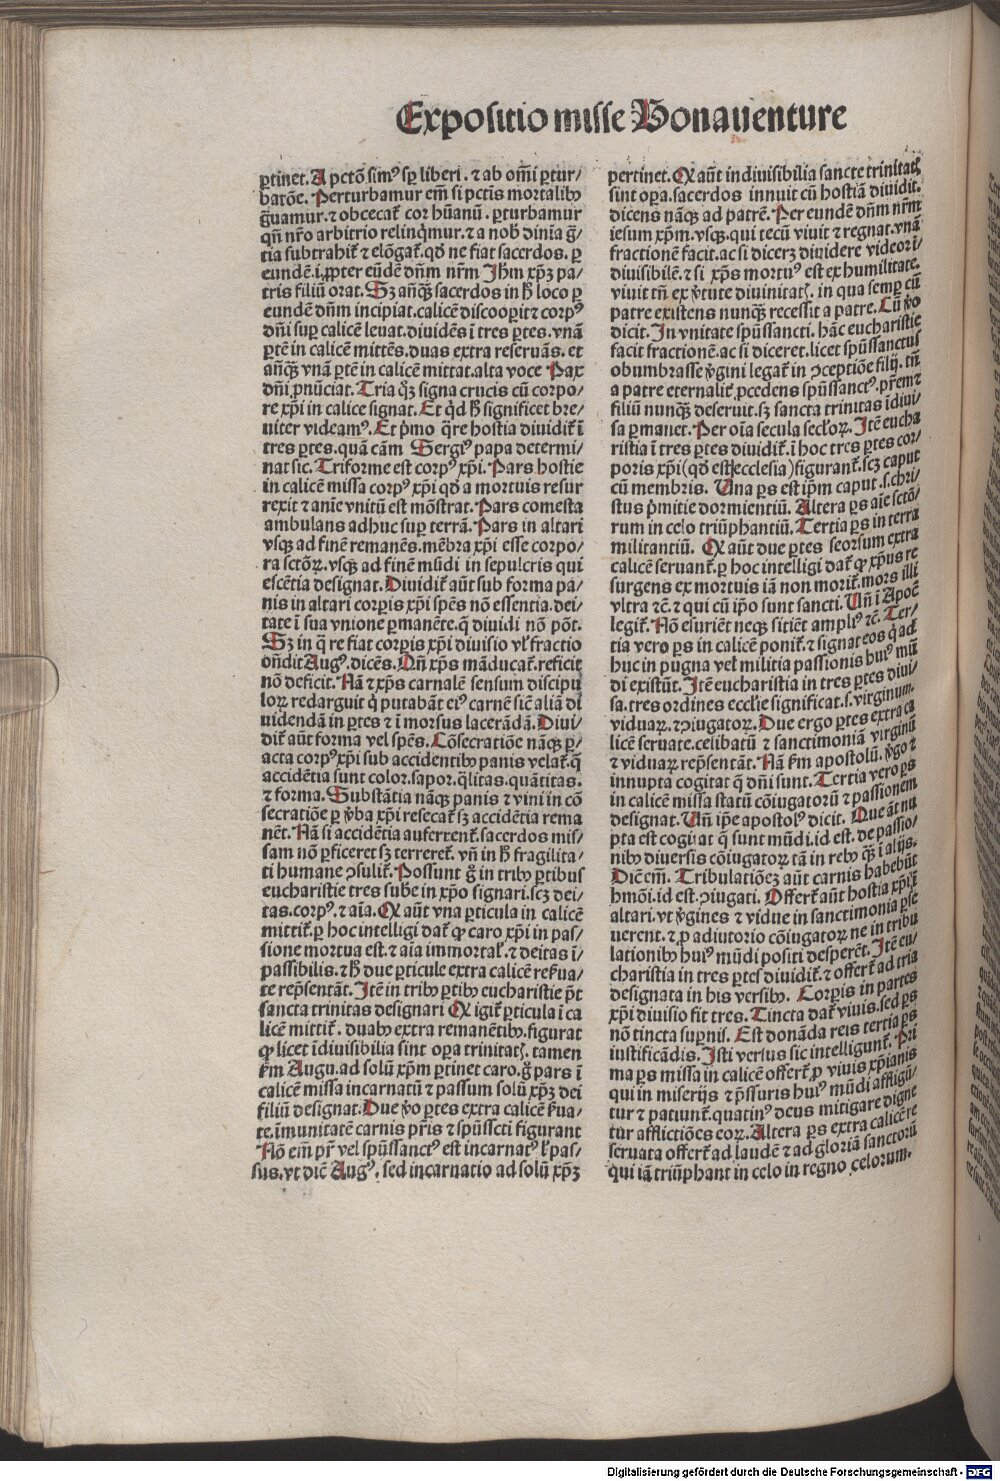 Expositio misse Bonauenture
ꝑtinet. A pctõ simꝰ sꝑ liberi. ⁊ ab om̃i ꝑtur/
batõe. Perturbamur em̃ si pctis mortalibꝰ
g̃uamur. ⁊ obcecat᷑ cor hũanũ. ꝑturbamur
qñ nr̃o arbitrio relinq̃mur. ⁊ a nob̃ diuina g̃/
tia subtrahit᷑ ⁊ elõgat᷑. qđ ne fiat sacerdos. ꝑ
eundẽ .i. ꝓpter eũdẽ dñm nr̃m Jh̃m xp̃ꝫ pa/
tris filiũ orat. Sꝫ añꝙ̃ sacerdos in h̃ loco ꝑ
eundẽ dñm incipiat. calicẽ discooꝑit ⁊ corpꝰ
dñi suꝑ calicẽ leuat. diuidẽs ĩ tres ꝑtes. vnã
ꝑtẽ in calicẽ mittẽs. duas extra reseruãs. et
añꝙ̃ vnã ꝑtẽ in calicẽ mittat. alta voce Pax
dñi ꝓnũciat. Tria q̃ꝫ signa crucis cũ corpo/
re xp̃i in calice signat. Et q̃d h̃ significet bre/
uiter videamꝰ. Et p̃mo q̃re hostia diuidit᷑ ĩ
tres ꝑtes. quã cãm Sergiꝰ papa determi/
nat sic. Triforme est corpꝰ xp̃i. Pars hostie
in calicẽ missa corpꝰ xp̃i qđ a mortuis resur
rexit ⁊ anĩe vnitũ est mõstrat. Pars comesta
ambulans adhuc suꝑ terrã. Pars in altari
vsqꝫ ad finẽ remanẽs. mẽbra xp̃i esse corpo/
ra sctõꝝ. vsqꝫ ad finem mũdi in sepulcris qui
escẽtia designat. Diuidit᷑ aũt sub forma pa/
nis in altari corꝑis xp̃i sp̃es nõ essentia. dei/
tate ĩ sua vnione ꝑmanẽte. q̃ diuidi nõ põt.
Sꝫ in q̃ re fiat corꝑis xp̃i diuisio vl̃ fractio
oñdit Augꝰ. dicẽs. Qñ xp̃s mãducat᷑. reficit
nõ deficit. Nã ⁊ xp̃s carnalẽ sensum discipu
loꝝ redarguit q̃ putabãt eiꝰ carnẽ sic̃ aliã di
uidendã in ꝑtes ⁊ ĩ morsus lacerãdã. Diui/
dit᷑ aũt forma vel sp̃es. Cõsecratiõe nãqꝫ ꝑ/
acta corpꝰ xp̃i sub accidentibꝰ panis velat᷑. q̃
accidẽtia sunt color. sapor. q̃litas. quãtitas.
⁊ forma. Substãtia nãqꝫ panis ⁊ vini in cõ
secratiõe ꝑ ꝟba xp̃i resecat᷑ sꝫ accidẽtia rema
nẽt. Nã si accidẽtia auferrent᷑. sacerdos mis/
sam nõ ꝑficeret sꝫ terreret᷑. vñ in h̃ fragilita/
ti humane ↄsulit᷑. Possunt g̃ in tribꝰ ꝑtibus
eucharistie tres sub̃e in xp̃o signari. scꝫ dei/
tas. corpꝰ. ⁊ aĩa. Qꝫ aũt vna ꝑticula in calicẽ
mittit᷑. ꝑ hoc intelligi dat᷑ ꝙ caro xp̃i in pas/
sione mortua est. ⁊ aĩa immortal᷑. ⁊ deitas ĩ/
passibilis. ⁊ h̃ due ꝑticule extra calicẽ res̃ua/
te rep̃sentãt. Jtẽ in tribꝰ ꝑtibꝰ eucharistie p̃t
sancta trinitas designari Qꝫ igit᷑ ꝑticula ĩ ca
licẽ mittit᷑. duabꝰ extra remanẽtibꝰ. figurat
ꝙ licet ĩdiuisibilia sint oꝑa trinitatꝭ. tamen
s̃m Augu. ad solũ xp̃m ꝑtinet caro. g̃ pars ĩ
calicẽ missa incarnatũ ⁊ passum solũ xp̃ꝫ dei
filiũ designat. Due ꝟo ꝑtes extra calicẽ s̃ua/
te. ĩmunitatẽ carnis pr̃is ⁊ spũsscti figurant
Nõ em̃ pr̃ vel spũssanctꝰ est incarnatꝰ l̃ pas/
sus. vt diẽ Augꝰ. sed incarnatio ad solũ xp̃ꝫ
pertinet. Qꝫ aũt indiuisibilia sancte trinitatꝭ
sint oꝑa. sacerdos innuit cũ hostiã diuidit.
dicens nãqꝫ ad patrẽ. Per eundẽ dñm nr̃m
iesum xp̃m. vsqꝫ. qui tecũ viuit ⁊ regnat. vnã
fractionẽ facit. ac si dicerꝫ diuidere videor ĩ/
diuisibilẽ. ⁊ si xp̃s mortuꝰ est ex humilitate.
viuit tñ ex ꝟtute diuinitatꝭ. in qua semꝑ cũ
patre existens nunꝙ̃ recessit a patre. Cũ ꝟo
dicit. Jn vnitate spũssancti. hãc eucharistie
facit fractionẽ. ac si diceret. licet spũssanctus
obumbrasse ꝟgini legat᷑ in ↄceptiõe filij. tñ
a patre eternalit᷑ ꝓcedens spũssanctꝰ. pr̃em ⁊
filiũ nunꝙ̃ deseruit. sꝫ sancta trinitas ĩdiui/
sa ꝑmanet. Per oĩa secula secĺoꝝ. Jtẽ eucha
ristia ĩ tres ꝑtes diuidit᷑. ĩ hoc tres ꝑtes cor/
poris xp̃i (qđ est ecclesia) figurant᷑. scꝫ caput
cũ membris. Una ꝑs est ip̃m caput .s. chri/
stus p̃mitie dormientiũ. Altera ꝑs aĩe sctõ/
rum in celo triũphantiũ. Tertia ꝑs in terra
militantiũ. Qꝫ aũt due ꝑtes seorsum extra
calicẽ seruant᷑. ꝑ hoc intelligi dat᷑ ꝙ xp̃us re
surgens ex mortuis iã non morit᷑. mors illi
vltra ⁊c̃. ⁊ qui cũ ip̃o sunt sancti. Uñ ĩ Apoc̃
legit᷑. Nõ esuriẽt neqꝫ sitiẽt ampliꝰ ⁊c̃. Ter/
tia vero ꝑs in calicẽ ponit᷑. ⁊ signat eos q̃ ad
huc in pugna vel militia passionis huiꝰ mũ
di existũt. Jtẽ eucharistia in tres ꝑtes diui/
sa. tres ordines eccl̃ie significat .s. virginum.
viduaꝝ. ↄiugatoꝝ. Due ergo ꝑtes extra ca
licẽ seruate. celibatũ ⁊ sanctimoniã virginũ
⁊ viduaꝝ rep̃sentãt. Nã s̃m apostolũ. ꝟgo ⁊
innupta cogitat q̃ dñi sunt. Tertia vero ꝑs
in calicẽ missa statũ cõiugatorũ ⁊ passionem
designat. Uñ ip̃e apostolꝰ dicit. Que aũt nu
pta est cogitat q̃ sunt mũdi. id est. de passio/
nibꝰ diuersis cõiugatoꝝ tã in rebꝰ ꝙ̃ ĩ alijs.
Diẽ em̃. Tribulatiõeꝫ aũt carnis habebũt
hm̃õi. id est. ↄiugati. Offert᷑ aũt hostia xp̃i ĩ
altari. vt ꝟgines ⁊ vidue in sanctimonia ꝑse
uerent. ⁊ ꝓ adiutorio cõiugatoꝝ ne in tribu
lationibꝰ huiꝰ mũdi positi desperẽt. Jtẽ eu/
charistia in tres ꝑtes diuidit᷑. ⁊ offert᷑ ad tria
designata in his versibꝰ. Corꝑis in partes
xp̃i diuisio fit tres. Tincta dat᷑ viuis. sed ꝑs
nõ tincta suꝑnis. Est donãda reis tertia ꝑs
iustificãdis. Jsti versus sic intelligunt᷑. Pri
ma ꝑs missa in calicẽ offert᷑ ꝓ viuis xp̃ianis
qui in miserijs ⁊ p̃ssuris huiꝰ mũdi affligũ/
tur ⁊ patiunt᷑. quatinꝰ deus mitigare digne
tur afflictiões eoꝝ. Altera ꝑs extra calicẽ re
seruata offert᷑ ad laudẽ ⁊ ad gloriã sanctorũ
qui iã triũphant in celo in regno celorum.
Digitalisierung gefördert durch die Deutsche Forschungsgemeinschaft - DFG